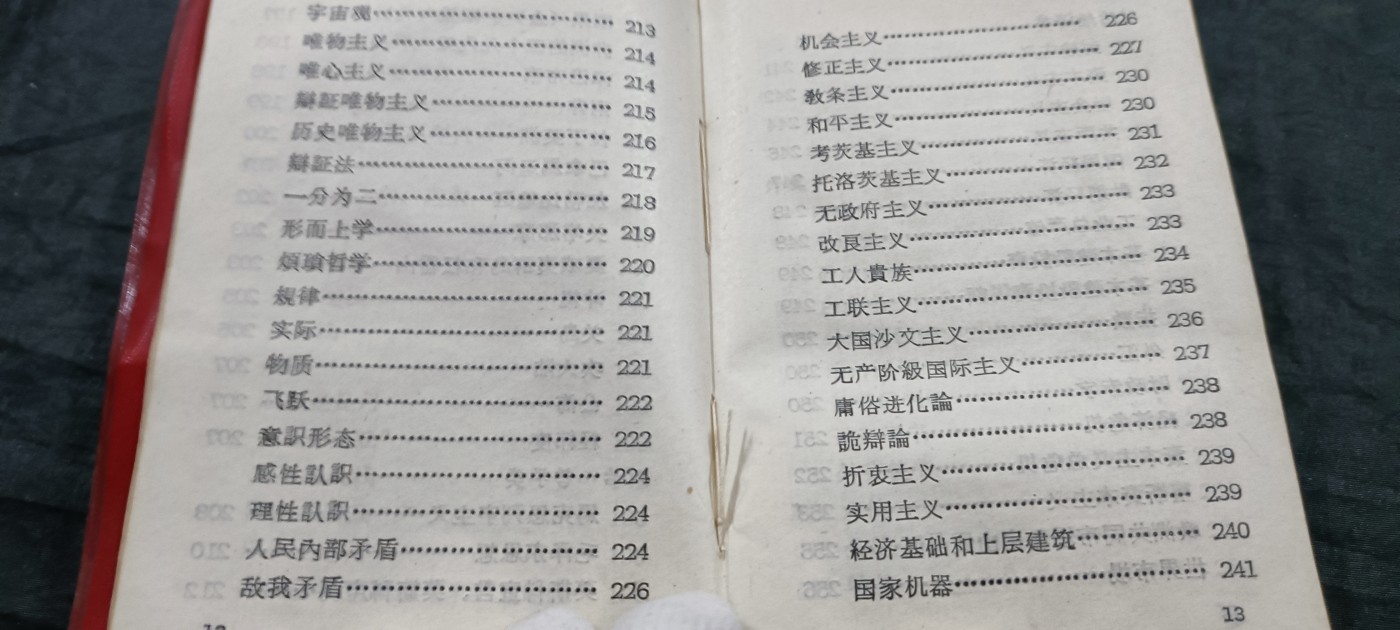 宇宙观…………………… 213
唯物主义…………………… 214
唯心主义…………………… 214
辯証唯物主义…………………… 215
历史唯物主义…………………… 216
辯証法…………………… 217
一分为二…………………… 218
形而上学…………………… 219
煩瑣哲学…………………… 220
規律…………………… 221
实际…………………… 221
物质…………………… 221
飞跃…………………… 222
意識形态…………………… 222
感性認識…………………… 224
理性認識…………………… 224
人民內部矛盾…………………… 224
敌我矛盾…………………… 226
12
机会主义…………………… 226
修正主义…………………… 227
敎条主义…………………… 230
和平主义…………………… 230
考茨基主义…………………… 231
托洛茨基主义…………………… 232
无政府主义…………………… 233
改良主义…………………… 233
工人貴族…………………… 234
工联主义…………………… 235
大国沙文主义…………………… 236
无产阶級国际主义…………………… 237
庸俗进化論…………………… 238
詭辯論…………………… 238
折衷主义…………………… 239
实用主义…………………… 239
经济基础和上层建筑…………………… 240
国家机器…………………… 241
13